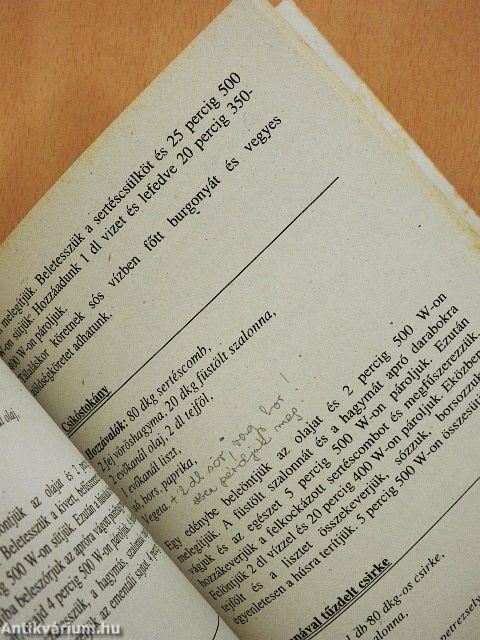 melegítjük. Beletesszük a sertéscsülköt és 25 percig 500
W-on sütjük. Hozzáadunk 1 dl vizet és lefedve 20 percig 350-
W-on pároljuk.
köretnek sós vízben főtt burgonyát és vegyes
adhatunk.
Csikóstokány
Hozzávalók: 80 dkg sertéscomb,
2 fej vöröshagyma, 20 dkg füstölt szalonna,
2 evőkanál olaj, 2 dl tejföl,
1 evőkanál liszt,
só, bors, paprika,
Vegeta + 2 dl sör vagy bor!
meg
Egy edénybe beleöntjük az olajat és 2 percig 500 W-on
melegítjük. A füstölt szalonnát és a hagymát apró darabokra
vágjuk és az egészet 5 percig 500 W-on pároljuk. Ezután
hozzákeverjük a felkockázott sertéscombot és megfűszerezzük.
Felöntjük 2 dl vízzel és 20 percig 400 W-on pároljuk. Eközben a
tejfölt és a lisztet összekeverjük, sózzuk, borsozzuk
egyenletesen a húsra terítjük. 5 percig 500 W-on összesütjük
tűzdelt csirke
db 80 dkg-os csirke,
olaj,
öntjük az olajat és 2
Beletesszük a kivert,
500 W-on sütjük. Ezután
beleszórjuk az apróra vágott
4 percig 500 W-on
a hagymát,
az ementáli sajtot
Antikvárium.hu